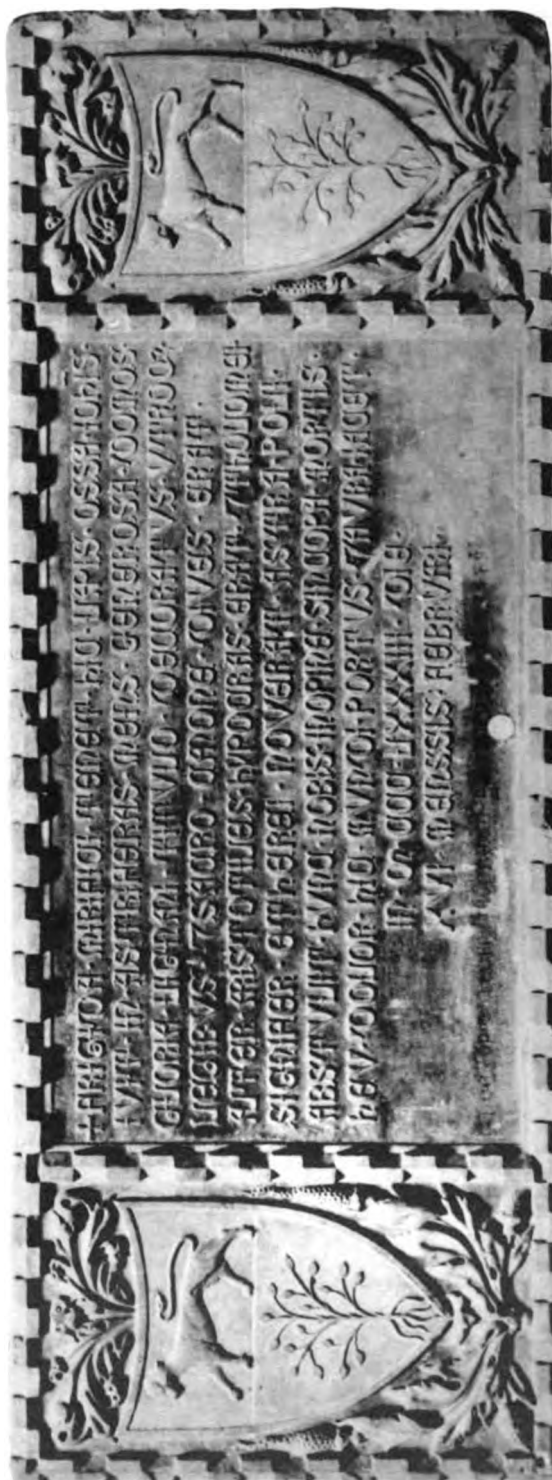 + FRIGIDA MIRIFICI TENET HIC LAPIS OSSA IOHIS
IVIT IN ASTRIFERAS MENS GENEROSA DOMOS
GLORIA LIGNANI TITVLO DECORATVS VTROQ
LEGIBVS 7 SACRO CANONE DIVES ERAT
ALTER ARISTOTILES HYPOCRAS ERAT 7 THOLOMEI
SIGNIFER ETHEREI NOVERAT ASTRA POLI
ABSTVLIT HVNC NOBIS INOPINE SINCOPA MORTIS
HEV DOLOR HIC MVNDI PORTVS 7 AVRA IACET
M CCC LXXXIII DIE
XVI MENSSIS FEBRVARI